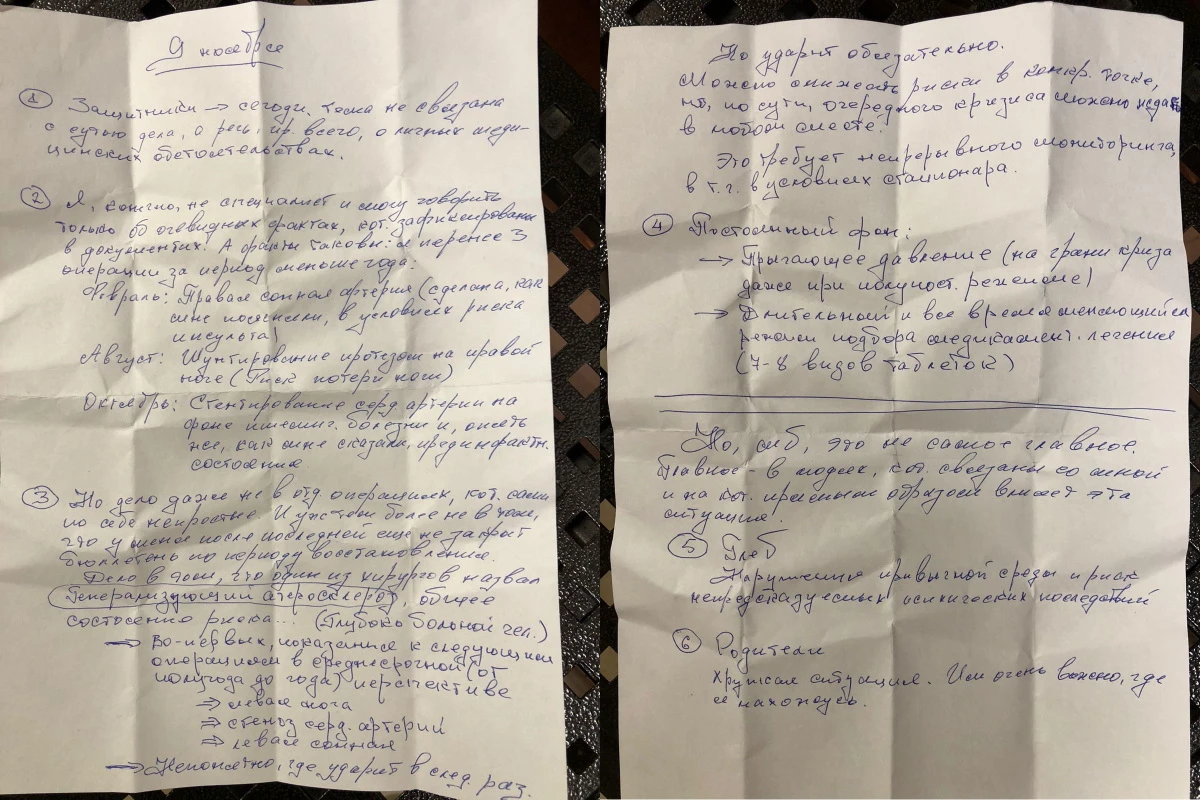 9 ноября
① Защитники → сегодн. тема не связана
с сутью дела, а речь, пр. всего, о личных меди-
цинских обстоятельствах.
② Я, конечно, не специалист и могу говорить
только об очевидных фактах, кот. зафиксированы
в документах. А факты таковы: я перенес 3
операции за период меньше года:
Февраль: Правая сонная артерия (сделана, как
мне пояснили, в условиях риска
инсульта)
Август: Шунтирование протезом на правой
ноге (Риск потери ноги)
Октябрь: Стентирование серд. артерии на
фоне ишемич. болезни и, опять
же, как мне сказали, прединфарктн.
состояние
③ Но дело даже не в отд. операциях, кот. сами
по себе непростые. И уж тем более не в том,
что у меня после последней еще не закрыт
бюллетень по периоду восстановления.
Дело в том, что один из хирургов назвал
Генерализующий атеросклероз, общее
состояние риска... (Глубоко больной чел.)
→ Во-первых, показанное к следующим
операциям в среднесрочной (от
полугода до года) перспективе
⇒ левая нога
⇒ стеноз серд. артерий
⇒ левая сонная
→ Непонятно, где ударит в след. раз.
Но ударит обязательно.
Можно снижать риски в конкр. точке,
но, по сути, очередного кризиса можно ждать
в любом месте.
Это требует непрерывного мониторинга,
в т.ч. в условиях стационара.
④ Постоянный фон:
→ Прыгающее давление (на грани криза
даже при режиме)
→ Длительный и все время меняющийся
режим подбора медикамент. лечения
(7-8 видов таблеток)
Но, это не самое главное.
Главное - в людях, кот. связаны со мной
и на кот. прямым образом влияет эта
ситуация.
⑤ Глеб
Нарушение привычной среды и риск
непредсказуемых психических последствий
⑥ Родители
Хрупкая ситуация. Им очень важно, где
я нахожусь.